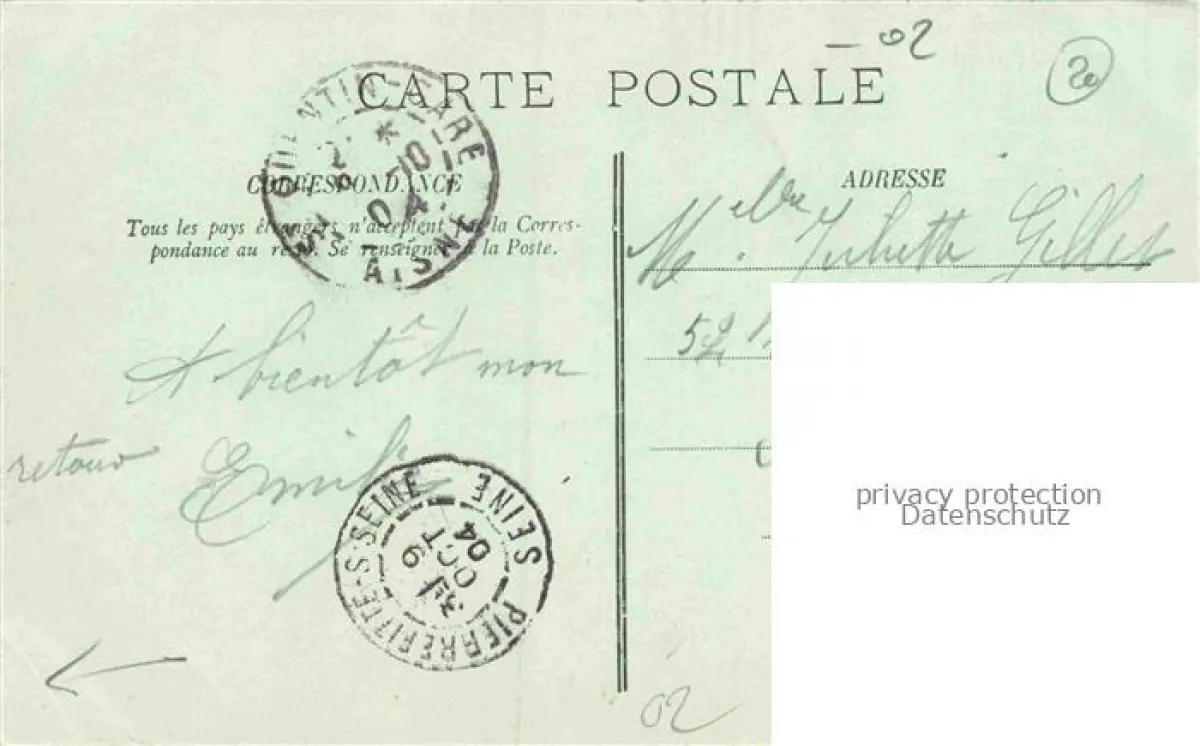 - 02
20
CARTE POSTALE
QUENTIN-GARE
* 10
04
AISNE
CORRESPONDANCE
Tous les pays étrangers n'acceptent pas la Corres-
pondance au recto. Se renseigner à la Poste.
A bientôt mon
retour Emile
PIERREFITTE-S-SEINE SEINE
3E
9
OCT
04
ADRESSE
Melle Juliette Gillet
52
privacy protection
Datenschutz
02